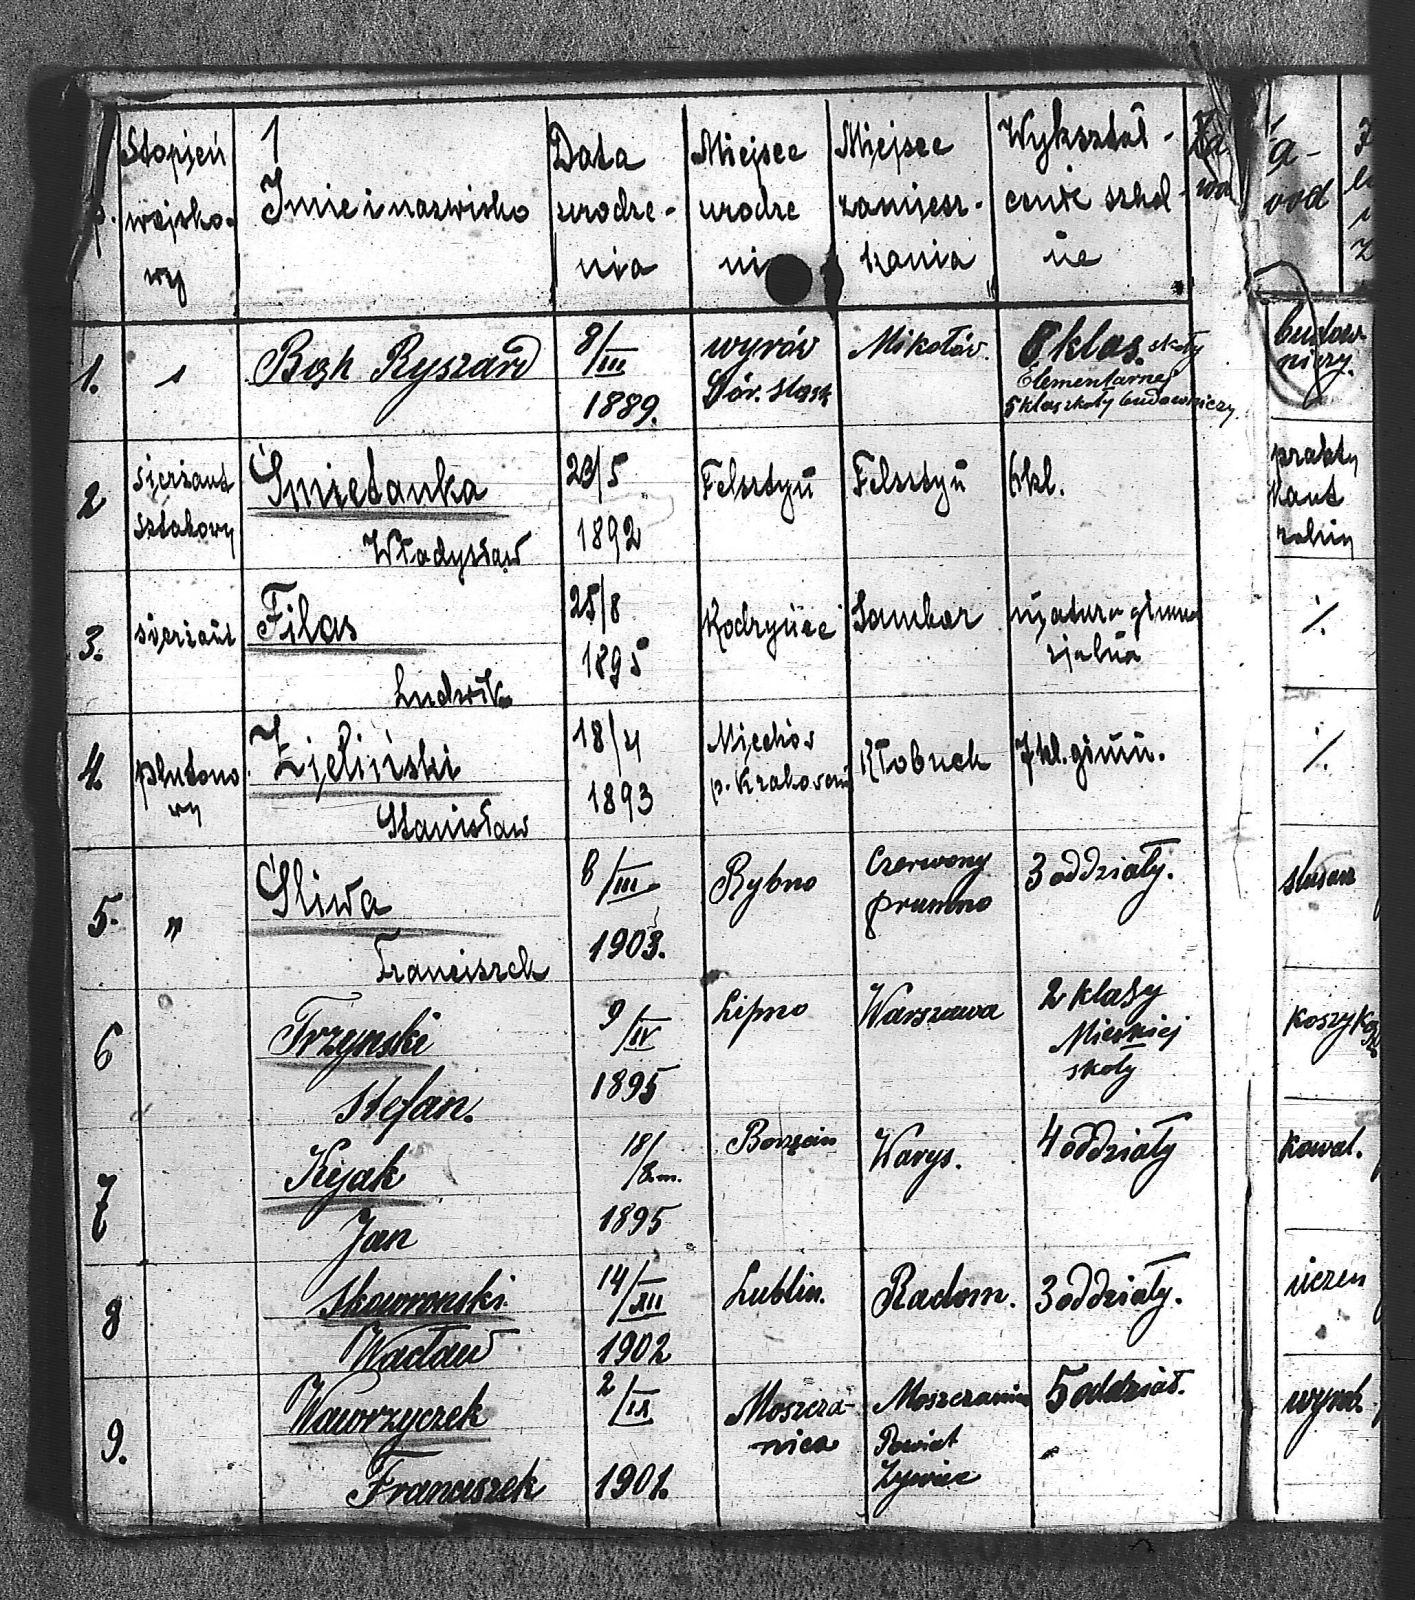 p.
Stopień
wojsko-
wy
1
Imie i nazwisko
Data
urodze-
nia
Miejsce
urodze
ni
Miejsce
zamiesz-
kania
Wykształ-
cenie szkol-
ne
Za
wod
a-
wod
1.
Ryszard
8/III
1889.
wyrów
Gór. Slask
Mikołów.
klas. skoły
Elementarnej
5 klas skoły budowniczy
budow-
niczy.
2
sierżant
sztabowy
Śmietanka
Władysław
23/5
1892
Felsztyn
Felsztyn
6 kl.
prakty
kant
3.
sierżant
Filas
Ludwik
25/8
1895
Sambor
matura gimna
zjalna
/.
4.
plutono
wy
Zieliński
Stanisław
18/4
1893
Miechów
p. Krakowem
Kłobuck
7 kl. gimn.
/.
5.
"
Śliwa
Franciszek
8/III
1903.
Rybno
Czerwony
prumno
3 oddziały.
6
Trzynski
Stefan.
9/IV
1895
Lipno
Warszawa
2 klasy
Mieskiej
skoły
koszyka
7
Kijak
Jan
18/
1895
Borzęcin
Warys.
4 oddziały
kowal.
8
Skawronski
Wacław
14/XII
1902
Lublin.
Radom.
3 oddziały.
uczen
9.
Waworzyczek
Franciszek
2/IX
1901.
Moszcza-
nica
Moszczanica
Powiat
Żywiec
5 oddział.
"